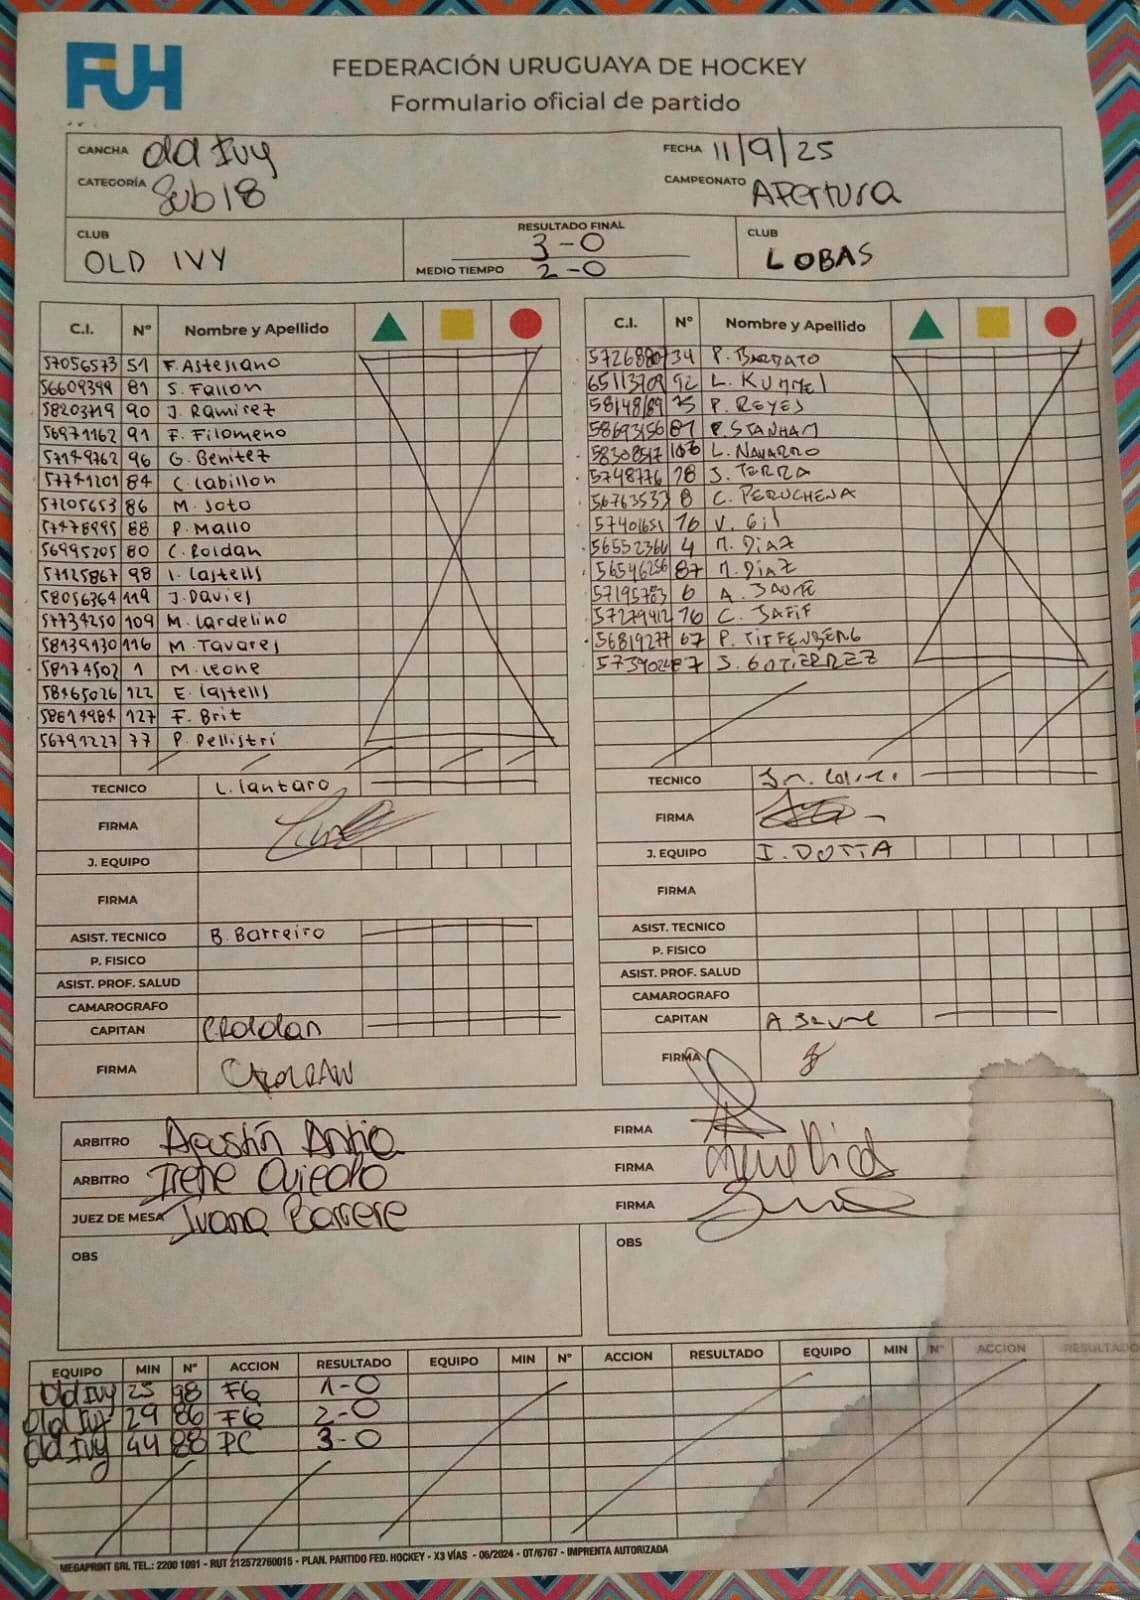 FUH
FEDERACIÓN URUGUAYA DE HOCKEY
Formulario oficial de partido
CANCHA Old Ivy FECHA 11/9/25
CATEGORÍA Sub18 CAMPEONATO APertura
CLUB OLD IVY RESULTADO FINAL 3-0 CLUB LOBAS
MEDIO TIEMPO 2-0
C.I. Nº Nombre y Apellido C.I. Nº Nombre y Apellido
57056573 51 F. Astesiano 34 P. BARRATO
56609399 81 S. Fallon 92 L. KUMMEl
58203719 90 J. Ramirez P. REYES
56971162 91 F. Filomeno P. STANHAM
57149762 96 G. Benitez L. NAVARRO
57741201 84 C. Cabillon 5748776 18 J. TERRA
57205653 86 M. Soto 56763533 8 C. PERUCHENA
57478995 88 P. Mallo V. Gil
56995205 80 C. Roldan 56552366 4 M. DIAZ
57125867 98 I. Castells 56546256 87 M. DIAZ
58056364 119 J. Davies 6 A.
57734250 109 M. Cardelino 57279412 C. JAFIF
58139130 116 M. Tavares 56819277 67 P.
58174502 1 M. Leone S. GUTIERREZ
58465026 122 E. Castells
58614984 127 F. Brit
56791227 77 P. Pellistri
TECNICO L. Cantaro TECNICO
FIRMA FIRMA
J. EQUIPO J. EQUIPO I. DOTTA
FIRMA FIRMA
ASIST. TECNICO B. Barreiro ASIST. TECNICO
P. FISICO P. FISICO
ASIST. PROF. SALUD ASIST. PROF. SALUD
CAMAROGRAFO CAMAROGRAFO
CAPITAN C. Roldan CAPITAN A
FIRMA CROLDAN FIRMA
ARBITRO Agustín FIRMA
ARBITRO Irene Oviedo FIRMA
JUEZ DE MESA Juana Barrere FIRMA
OBS OBS
EQUIPO MIN Nº ACCION RESULTADO EQUIPO MIN Nº ACCION RESULTADO EQUIPO MIN Nº ACCION RESULTADO
Old Ivy 25 98 FG 1-0
Old Ivy 29 86 FG 2-0
Old Ivy 44 88 PC 3-0
MEGAPRINT SRL TEL.: 2200 1091 - RUT 212572760015 - PLAN. PARTIDO FED. HOCKEY - X3 VÍAS - 06/2024 - OT/6767 - IMPRENTA AUTORIZADA